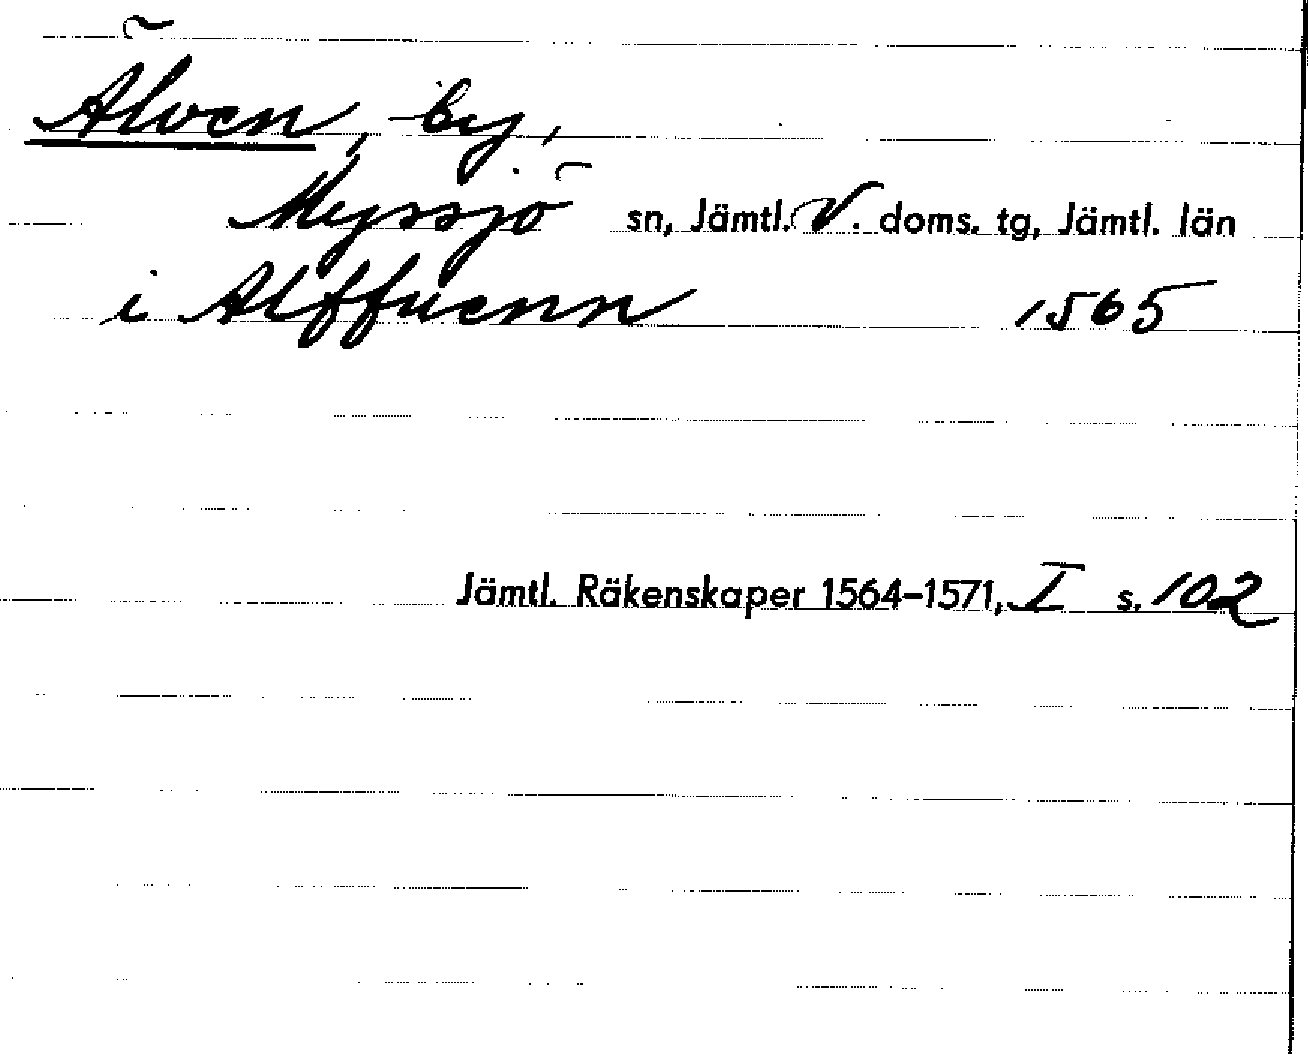 Älven, by,
Myssjö sn, Jämtl. V. doms. tg, Jämtl. län
i Alffuenn 1565
Jämtl. Räkenskaper 1564–1571, I s. 102